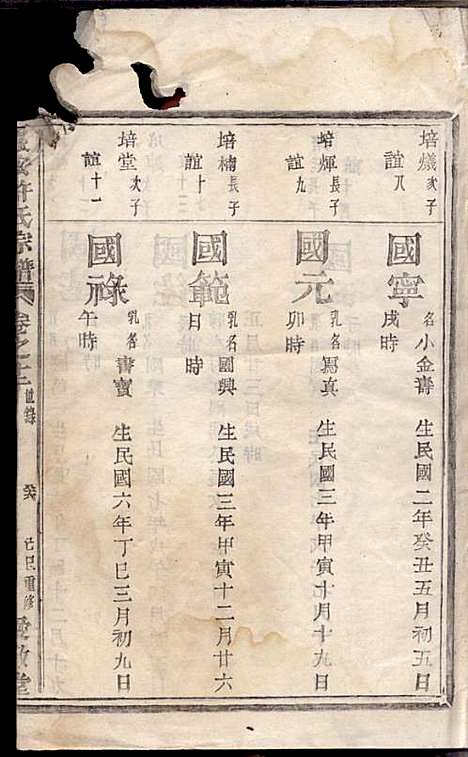 培爔次子
誼八
國寧
名小金壽 生民國二年癸丑五月初五日
戌時
培煇長子
誼九
國元
乳名寫真 生民國三年甲寅十月十九日
卯時
培楠長子
誼十
國範
乳名國興 生民國三年甲寅十二月廿六
日 時
培堂次子
誼十一
國祿
乳名書寶 生民國六年丁巳三月初九日
午時
許氏宗譜 卷之十二 世錄
己巳重修 愛敬堂